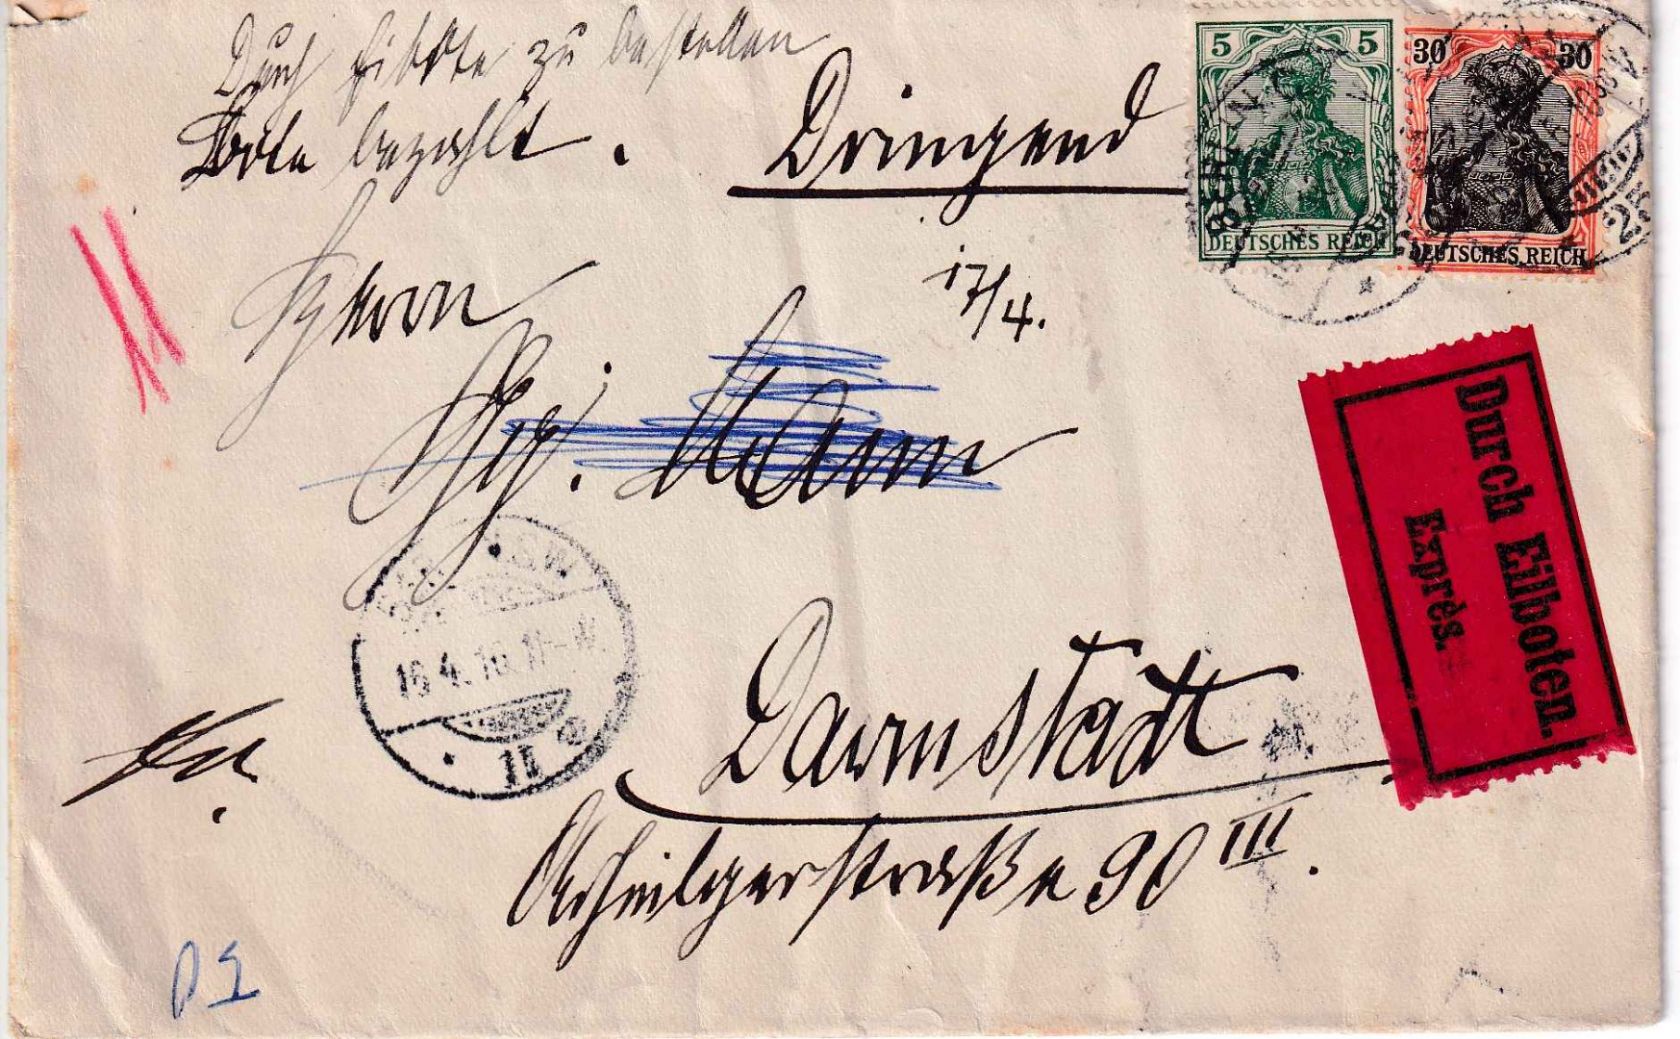 Durch Eilbote zu bestellen
Bote bezahlt.
Dringend
5 5
DEUTSCHES REICH
30 30
DEUTSCHES REICH
BERLIN
25
Herrn
17/4.
Mann
Durch Eilboten.
Exprès.
S.W.
16.4.16.11-12
11
Darmstadt
Arheilgerstraße 90 III.